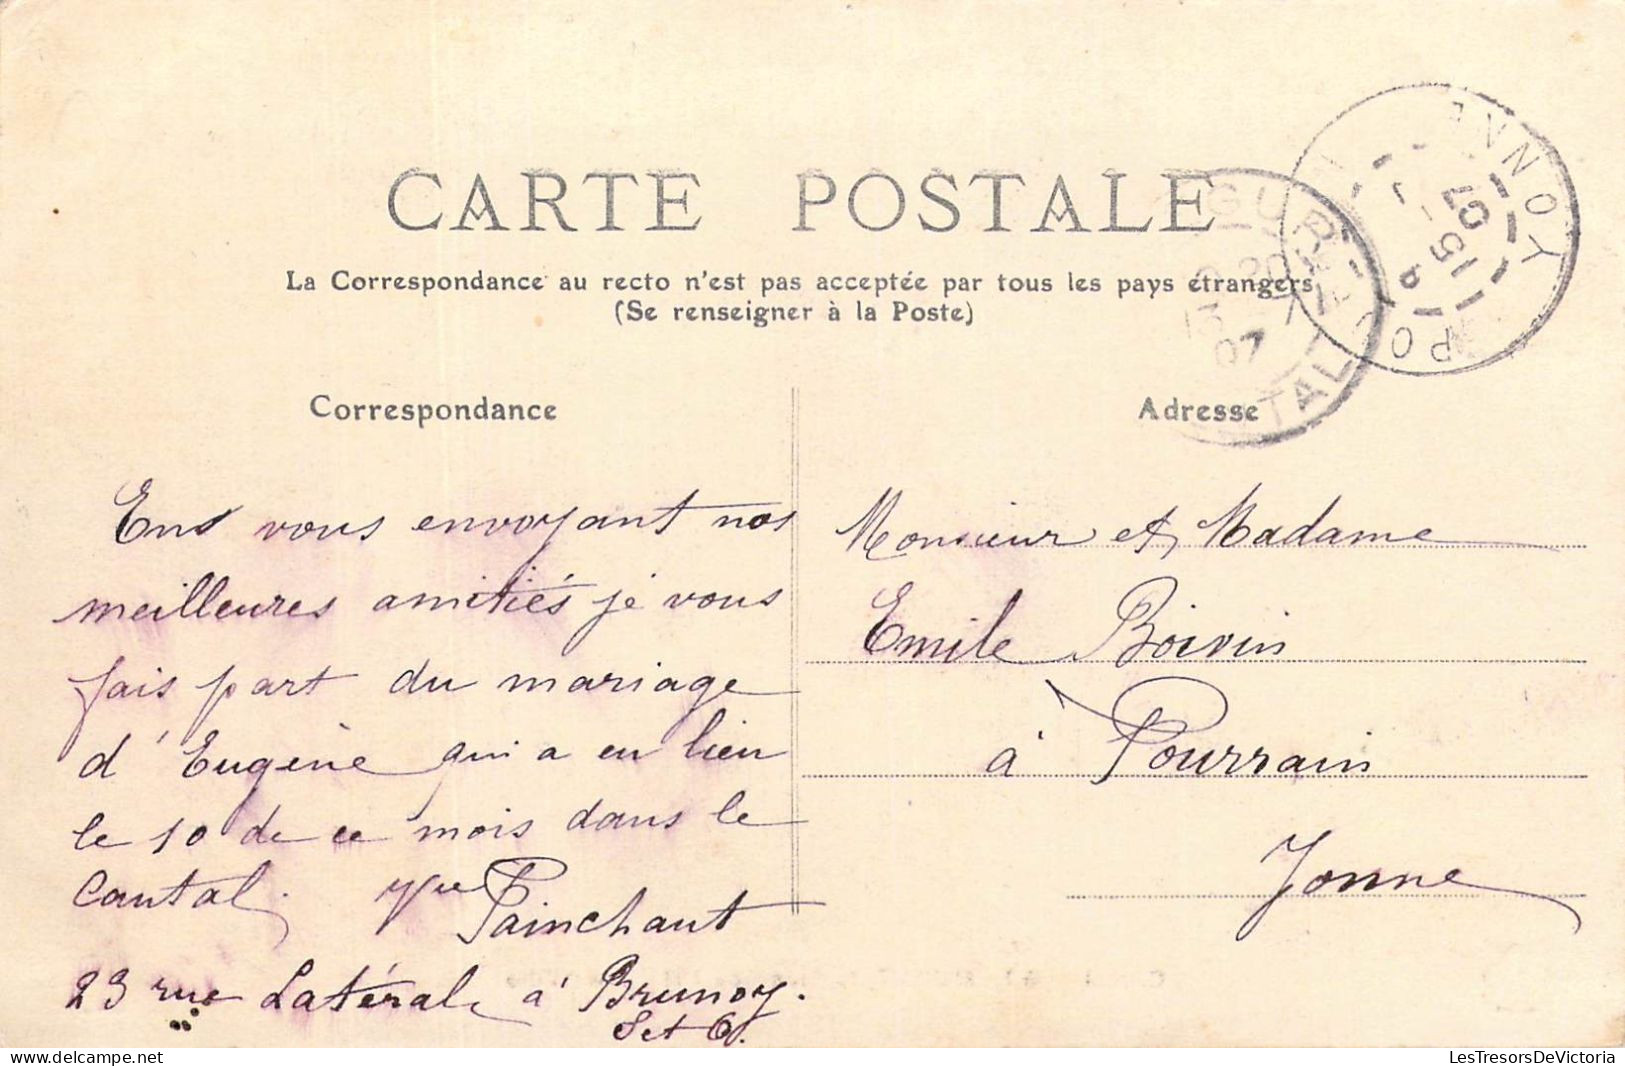 CARTE POSTALE
La Correspondance au recto n'est pas acceptée par tous les pays étrangers
(Se renseigner à la Poste)
Correspondance
Adresse
YONNE
07
TAL
07
En vous envoyant nos
meilleures amitiés je vous
fais part du mariage
d'Eugène qui a eu lieu
le 10 de ce mois dans le
Cantal. Vve Painchaut
23 rue Latérale à Brunoy.
S et O.
Monsieur et Madame
Emile Boivin
à Pourrain
Yonne
LesTresorsDeVictoria